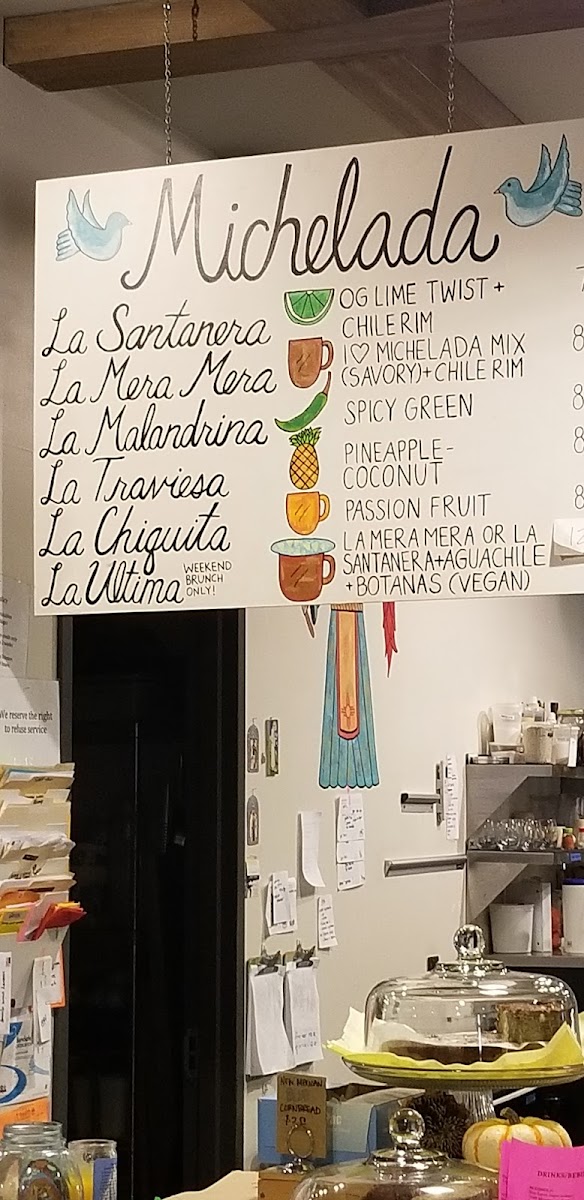 Michelada
La Santanera
OG LIME TWIST +
CHILE RIM
7
La Mera Mera
I ♡ MICHELADA MIX
(SAVORY) + CHILE RIM
8
La Malandrina
SPICY GREEN
8
La Traviesa
PINEAPPLE-
COCONUT
8
La Chiquita
PASSION FRUIT
8
La Ultima
WEEKEND
BRUNCH
ONLY!
LA MERA MERA OR LA
SANTANERA + AGUACHILE
+ BOTANAS (VEGAN)
12
We reserve the right
to refuse service
NEW MEXICAN
CORNBREAD